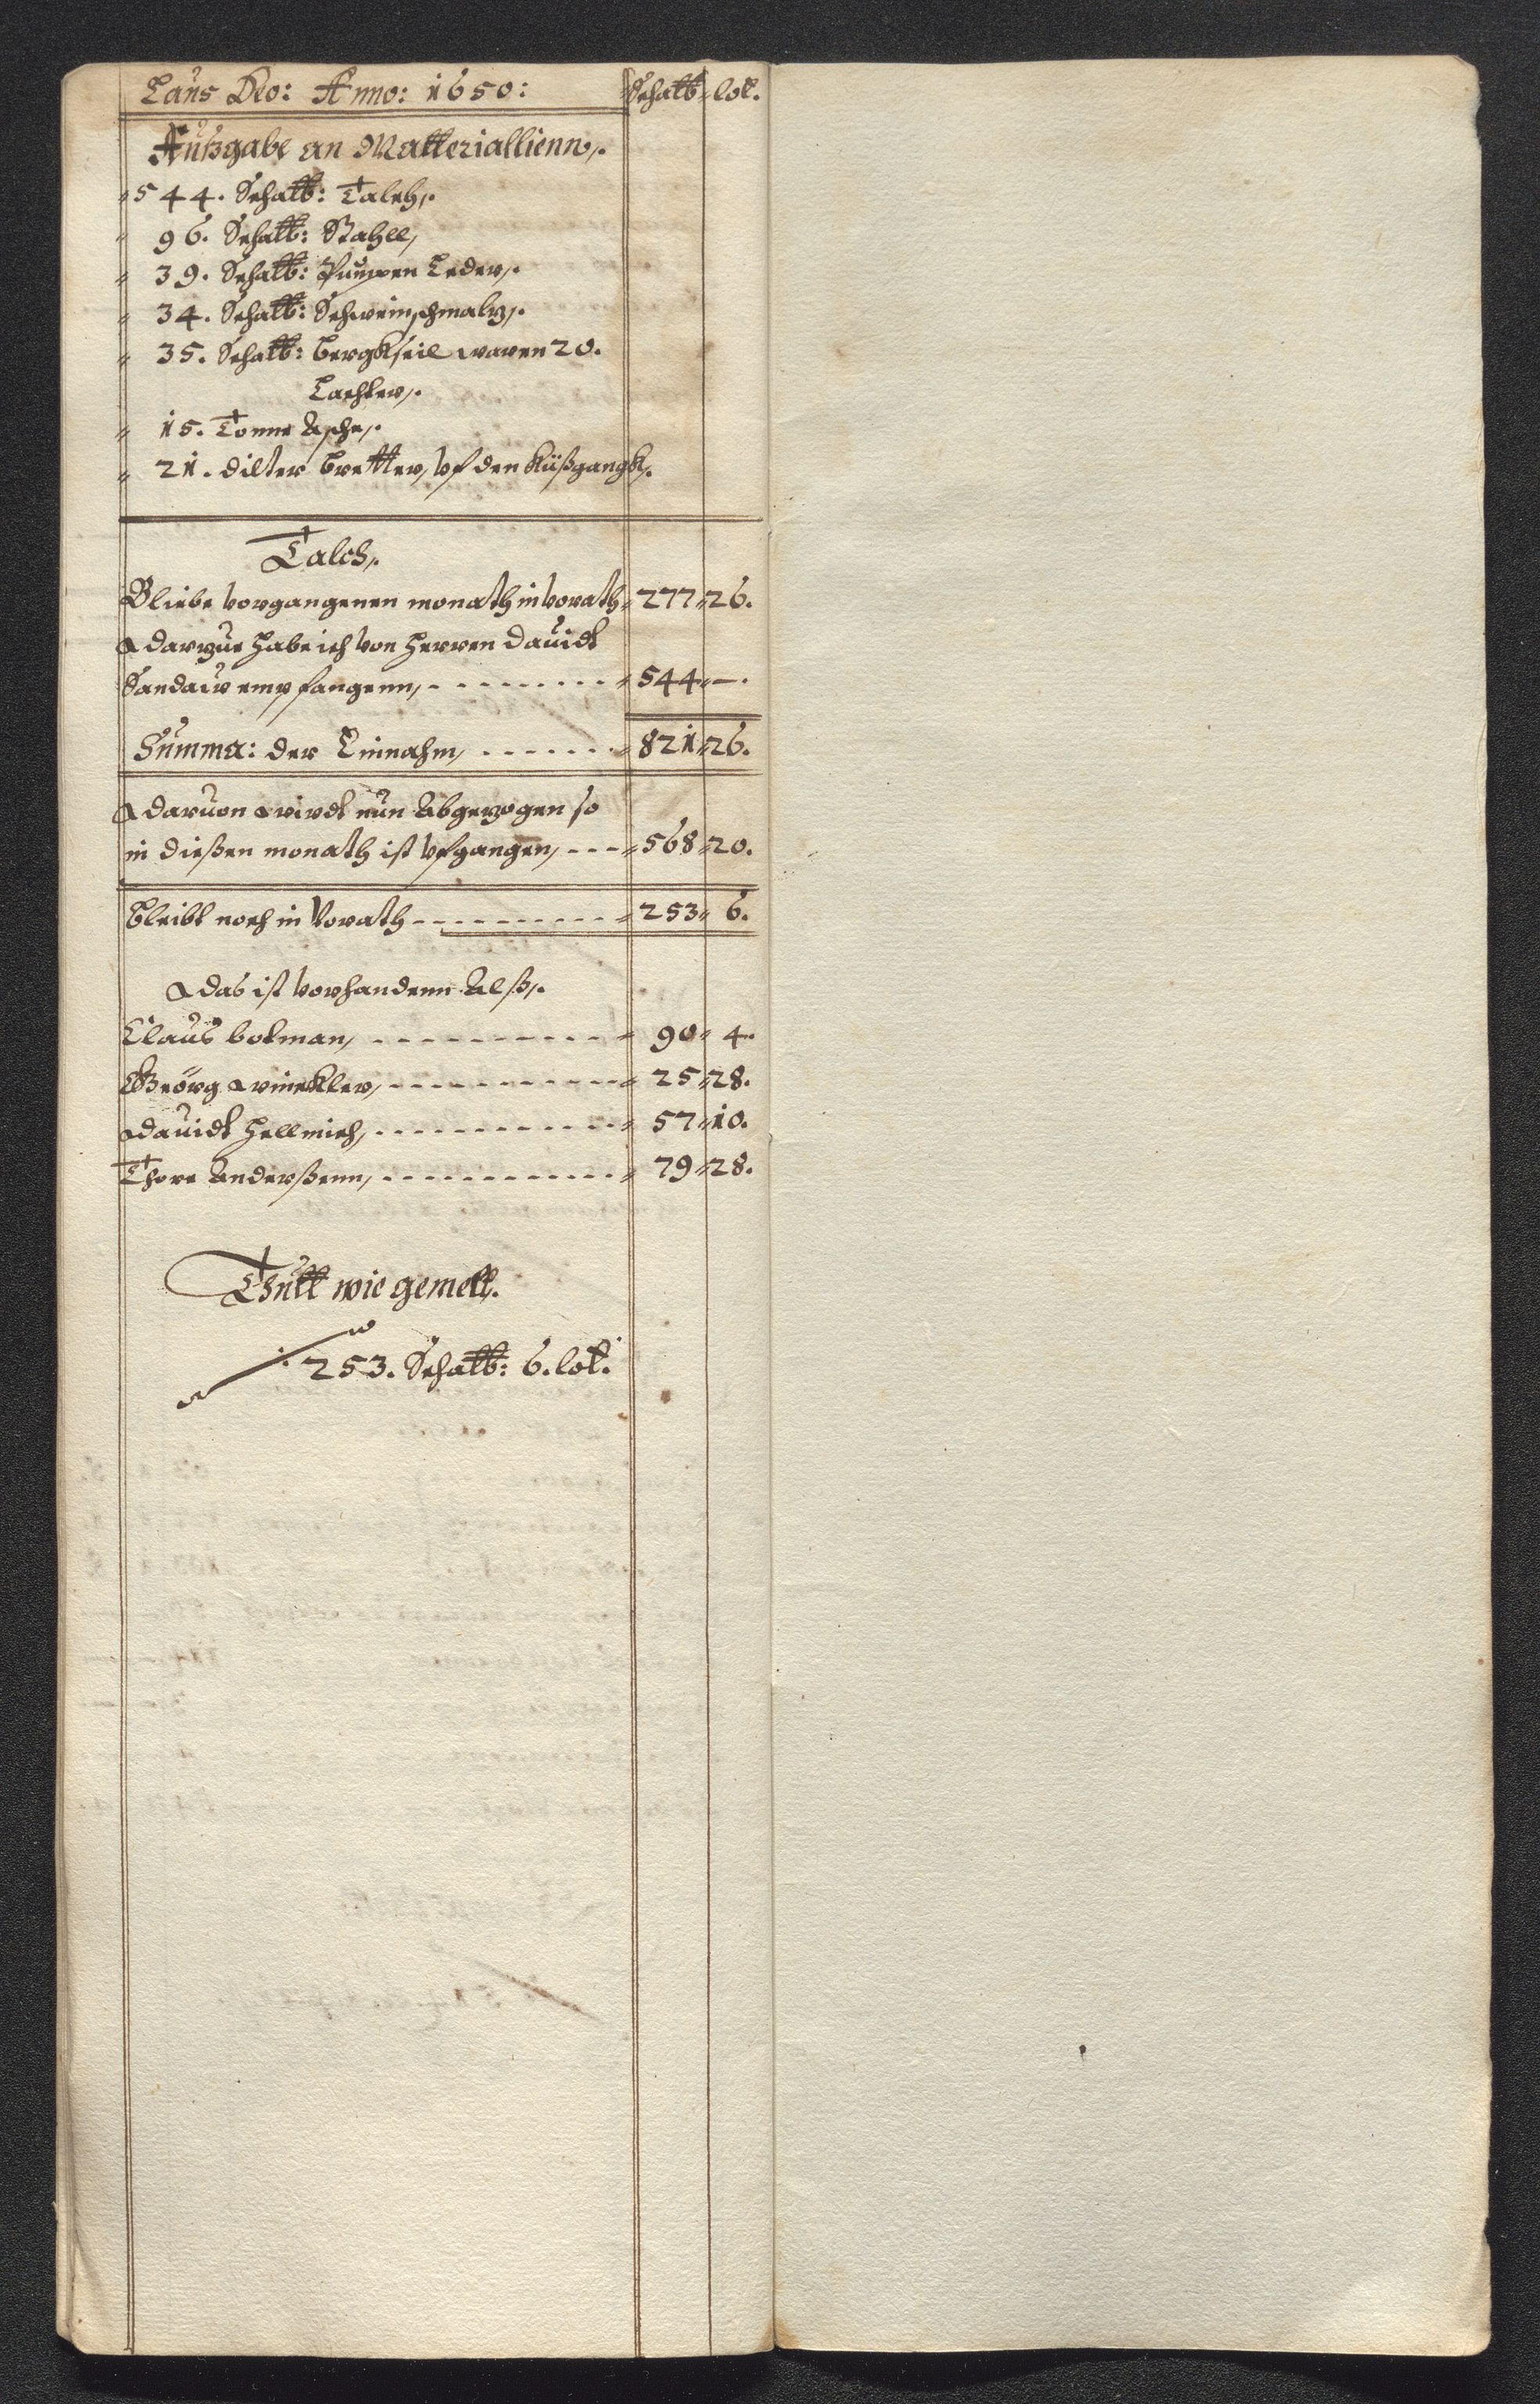 Laus Deo: Anno: 1650: Schalb lot.
Außgabe an Matteriallienn,.
544. Schalb: Talch,.
96. Schalb: Stahll,
39. Schalb: Pumpen Leder,.
34. Schalb: Schweinschmalz,.
35. Schalb: Bergkseil waren 20.
Lachter,.
15. Tonne Asche,.
21. dilter bretter, vf den Küßgangk,.
Talch,.
Bliebe vorgangenen monath in vorath 277 26.
darzue habe ich von Herren Dauidt
Sandauw empfangenn, 544 —.
Summa: der Einnahm, 821 26.
daruon wirdt nun Abgezogen so
in dießen monath ist vfgangen, 568 20.
bleibt noch in Vorath 253 6.
das ist vorhandenn Alß,.
Claus botman, 90 4.
Geörg winckler, 25 28.
dauidt Hellmich, 57 10.
Thore Anderßenn, 79 28.
Thutt wie gemelt.
253. Schalb: 6. lot.